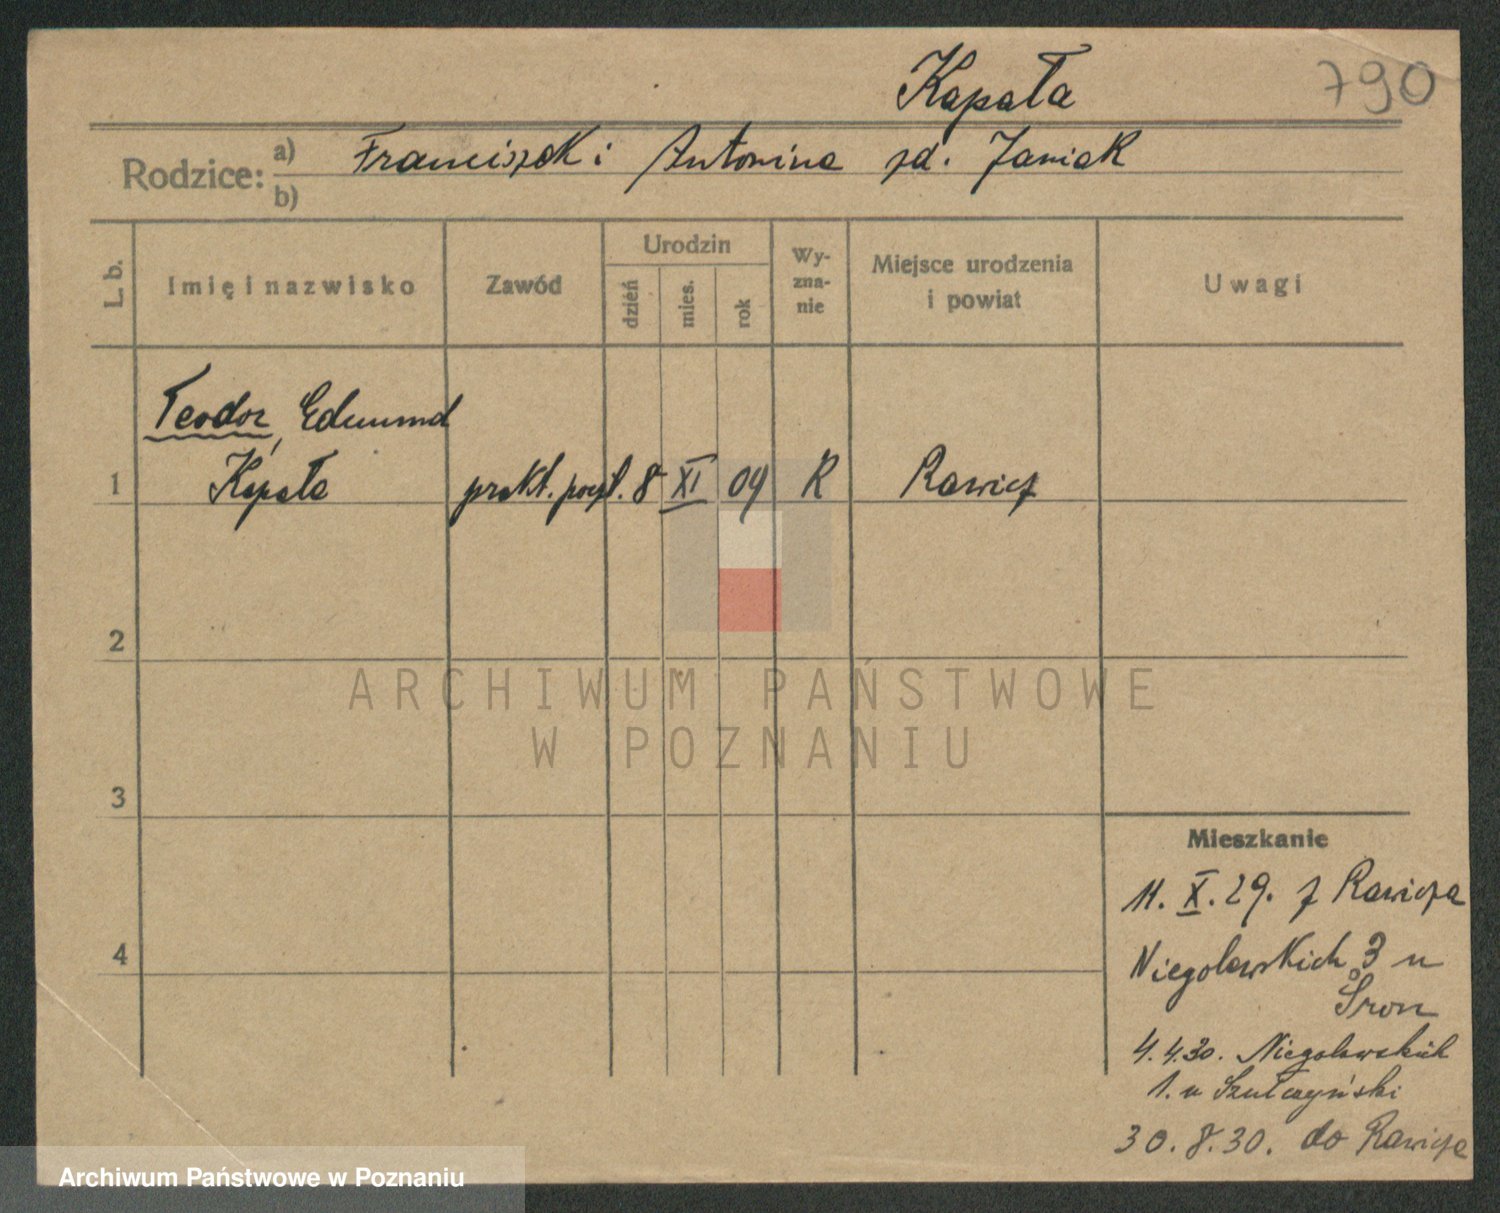 Kapała
790
Rodzice: a) Franciszek i Antonina zd. Janiak
b)
L. b.
Imię i nazwisko
Zawód
Urodzin
dzień
mies.
rok
Wy-
zna-
nie
Miejsce urodzenia
i powiat
Uwagi
Teodor, Edmund
1 Kapała prakt. poczt. 8 XI 09 R Rawicz
2
ARCHIWUM PAŃSTWOWE
W POZNANIU
3
Mieszkanie
11. X. 29. z Rawicza
4
Niegolewskich 3 u
4.4.30. Niegolewskich
1. u Szułczyński
30.8.30. do Rawicza
Archiwum Państwowe w Poznaniu